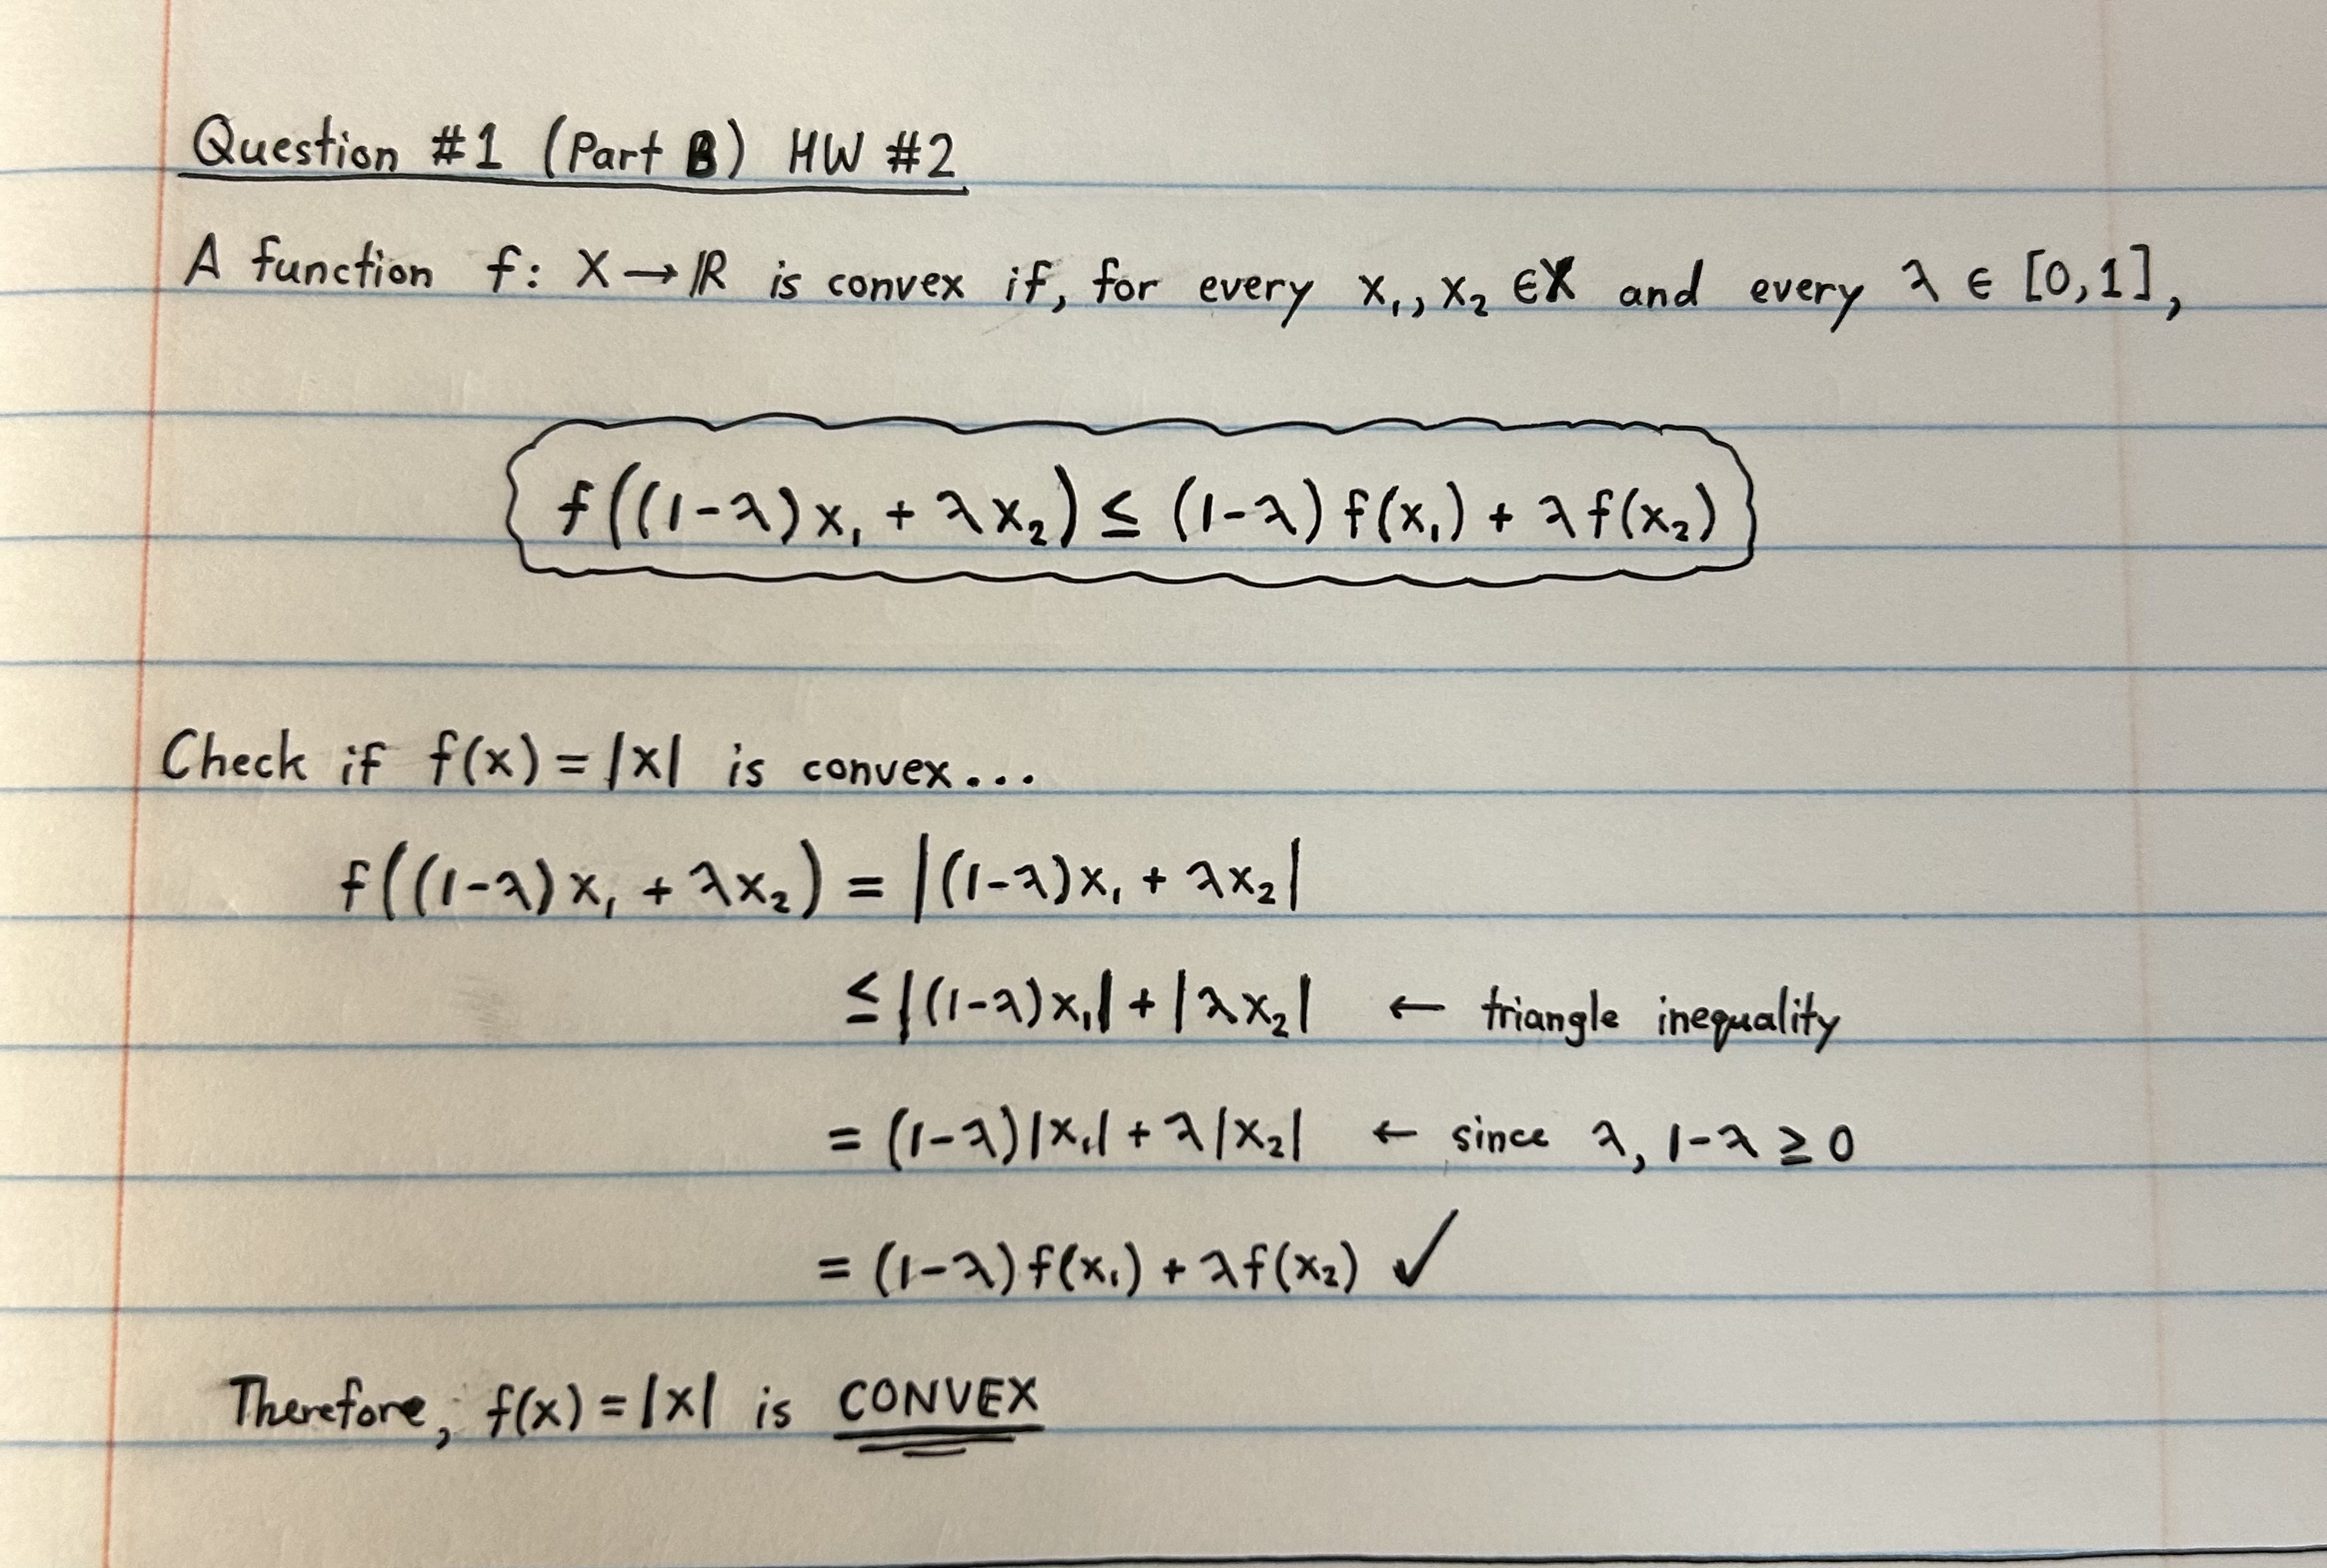 Question #1 (Part B) HW #2
A function f: X → ℝ is convex if, for every x₁, x₂ ∈ X and every λ ∈ [0,1],
f((1-λ)x₁ + λx₂) ≤ (1-λ) f(x₁) + λf(x₂)
Check if f(x) = |x| is convex...
f((1-λ)x₁ + λx₂) = |(1-λ)x₁ + λx₂|
≤ |(1-λ)x₁| + |λx₂| ← triangle inequality
= (1-λ)|x₁| + λ|x₂| ← since λ, 1-λ ≥ 0
= (1-λ)f(x₁) + λf(x₂) ✓
Therefore, f(x) = |x| is CONVEX